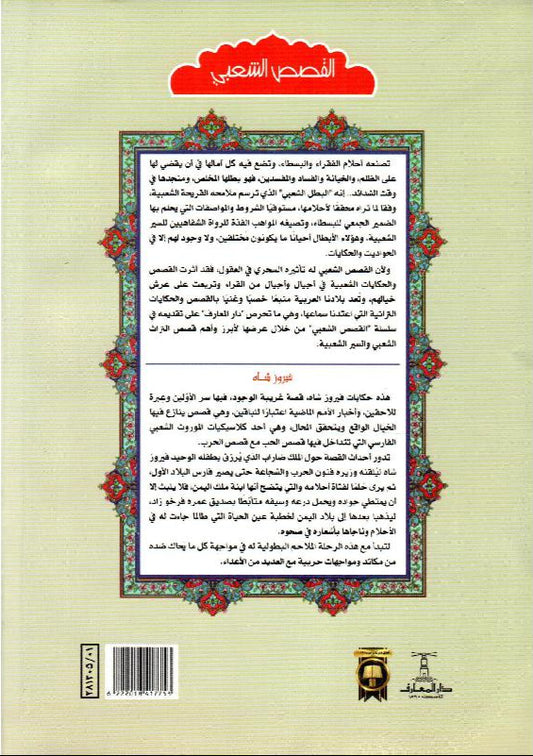 القصص الشعبي
تصنعه أحلام الفقراء والبسطاء، وتضع فيه كل آمالها في أن يقضي لها
على الظلم، والخيانة والفساد والمفسدين، فهو بطلها المخلص، ومنجدها في
وقت الشدائد.. إنه "البطل الشعبي" الذي ترسم ملامحه القريحة الشعبية،
وفقا لما تراه محققا لأحلامها، مستوفيًا الشروط والمواصفات التي يحلم بها
الضمير الجمعي للبسطاء، وتصيغه المواهب الفذة للرواة الشفاهيين للسير
الشعبية، وهؤلاء الأبطال أحيانا ما يكونون مختلفين، ولا وجود لهم إلا في
الحواديت والحكايات.
ولأن القصص الشعبي له تأثيره السحري في العقول، فقد أثرت القصص
والحكايات الشعبية في أجيال وأجيال من القراء وتربعت على عرش
خيالهم، وتُعد بلادنا العربية منبعًا خصبًا وغنيًا بالقصص والحكايات
التراثية التي اعتدنا سماعها، وهي ما تحرص "دار المعارف" على تقديمه في
سلسلة "القصص الشعبي" من خلال عرضها لأبرز وأهم قصص التراث
الشعبي والسير الشعبية.
فيروز شاه
هذه حكايات فيروز شاه، قصة غريبة الوجود، فيها سر الأولين وعبرة
للاحقين، وأخبار الأمم الماضية اعتبارًا للباقين، وهي قصص ينازع فيها
الخيال الواقع ويتحقق المحال، وهي أحد كلاسيكيات الموروث الشعبي
الفارسي التي تتداخل فيها قصص الحب مع قصص الحرب..
تدور أحداث القصة حول الملك ضاراب الذي يُرزق بطفله الوحيد فيروز
شاه ليلقنه وزيره فنون الحرب والشجاعة حتى يصير فارس البلاد الأول،
ثم يرى حلمًا لفتاة أحلامه والتي يتضح أنها ابنة ملك اليمن، فلا يلبث إلا
أن يمتطي جواده ويحمل درعه وسيفه متأبطًا بصديق عمره فرخو زاد،
ليذهبا بعدها إلى بلاد اليمن لخطبة عين الحياة التي طالما جاءت له في
الأحلام وناجاها بأشعاره في صحوه.
لتبدأ مع هذه الرحلة الملاحم البطولية له في مواجهة كل ما يحاك ضده
من مكائد ومواجهات حربية مع العديد من الأعداء.
٣٨١٣٠٥/٠١
دار المعارف